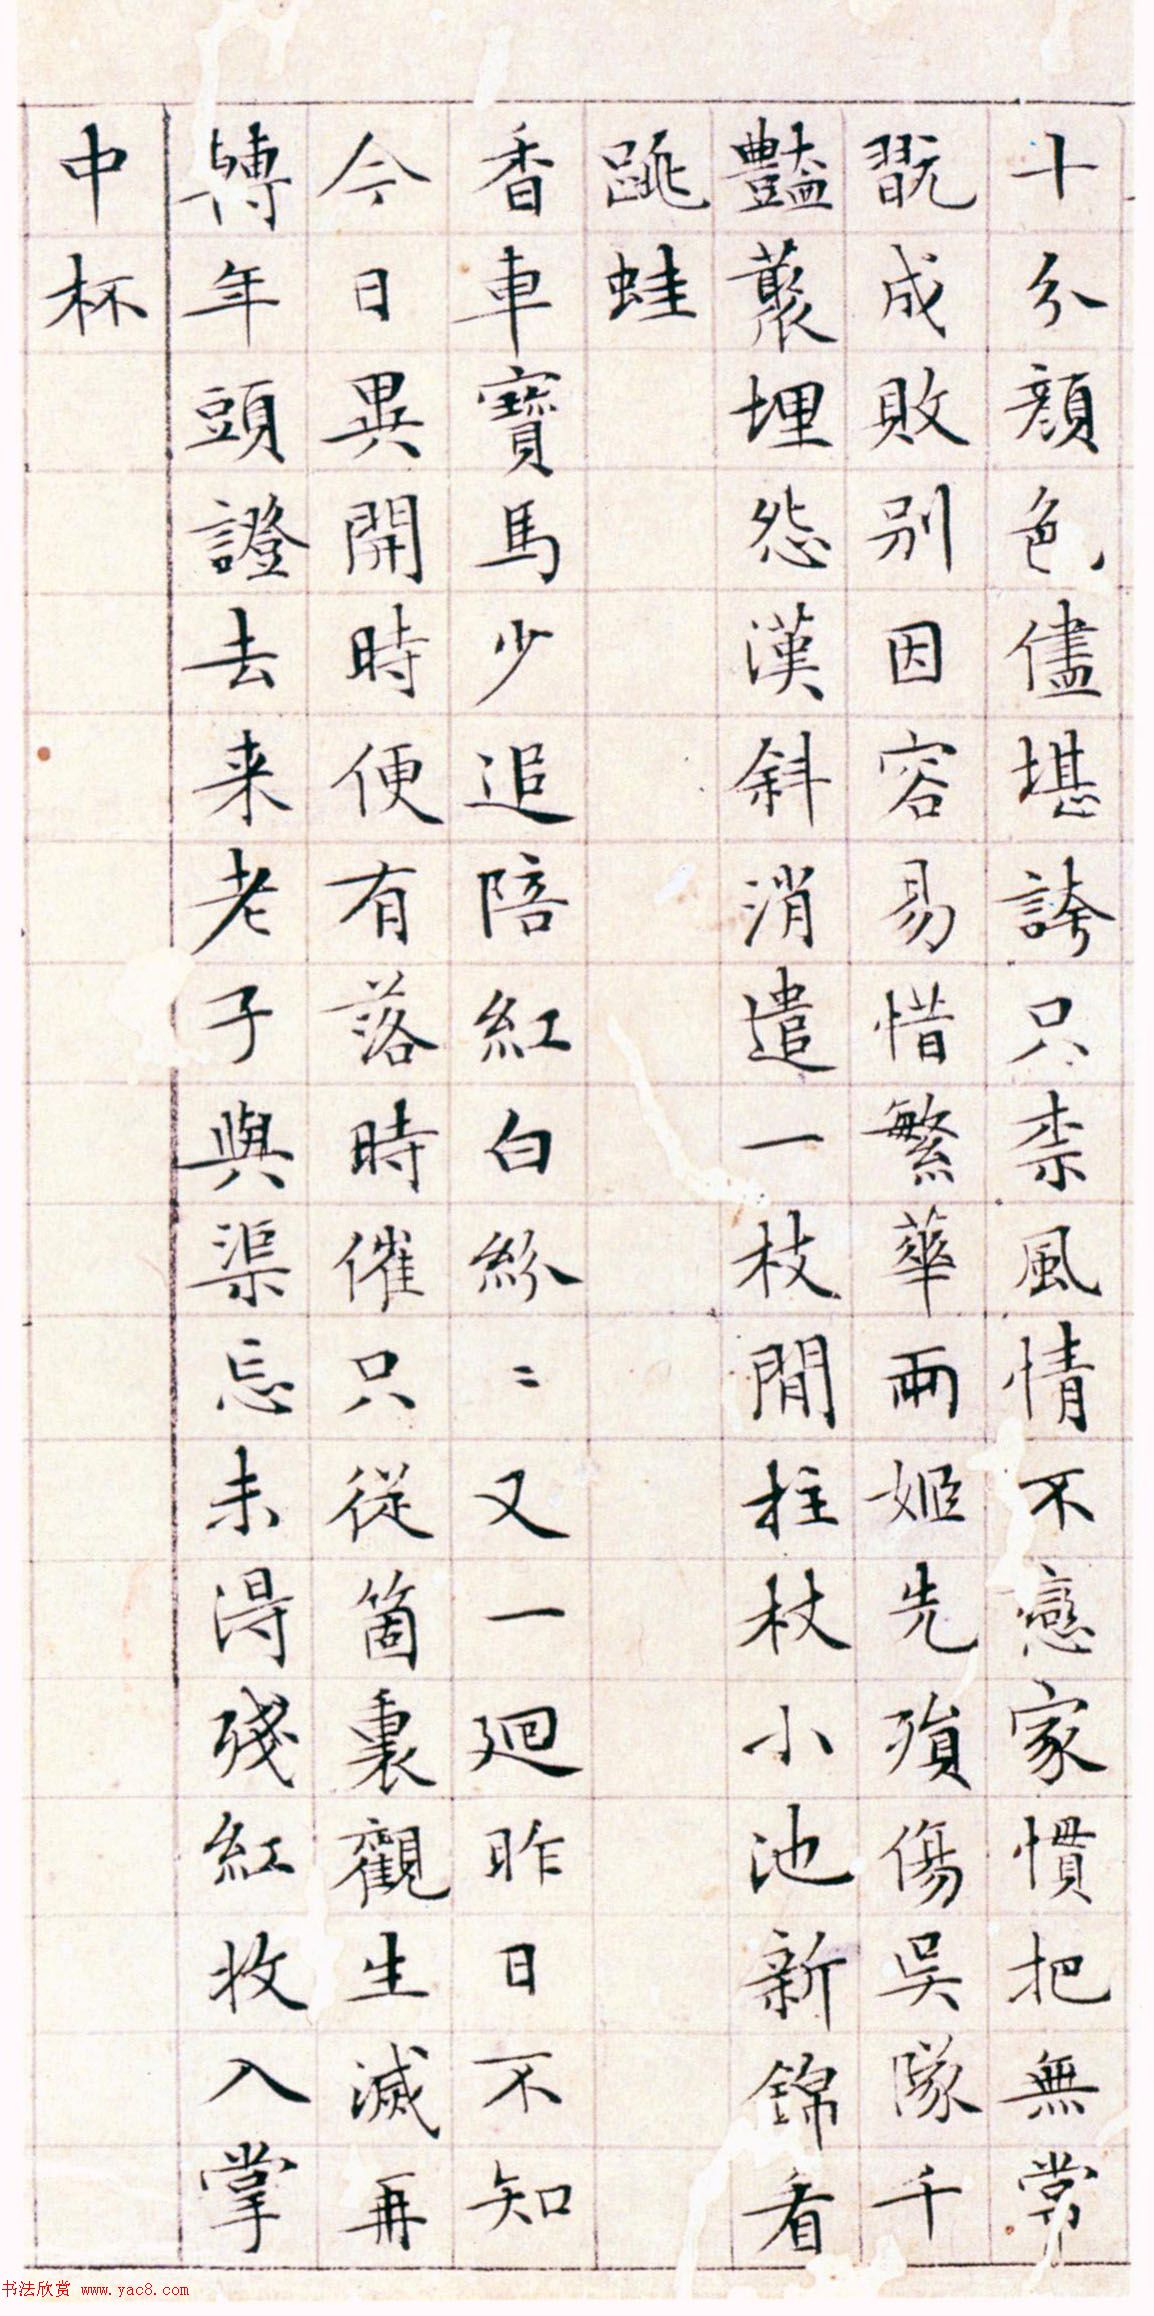 十分顏色儘堪誇只柰風情不戀家慣把無常
翫成敗别因容易惜繁華兩姬先殞傷吳隊千
豔藂埋怨漢斜消遣一枝閒拄杖小池新錦看
跳蛙
香車寶馬少追陪紅白紛〻又一迴昨日不知
今日異開時便有落時催只從箇裏觀生滅再
轉年頭證去来老子與渠忘未得殘紅收入掌
中杯
书法欣赏 www.yac8.com